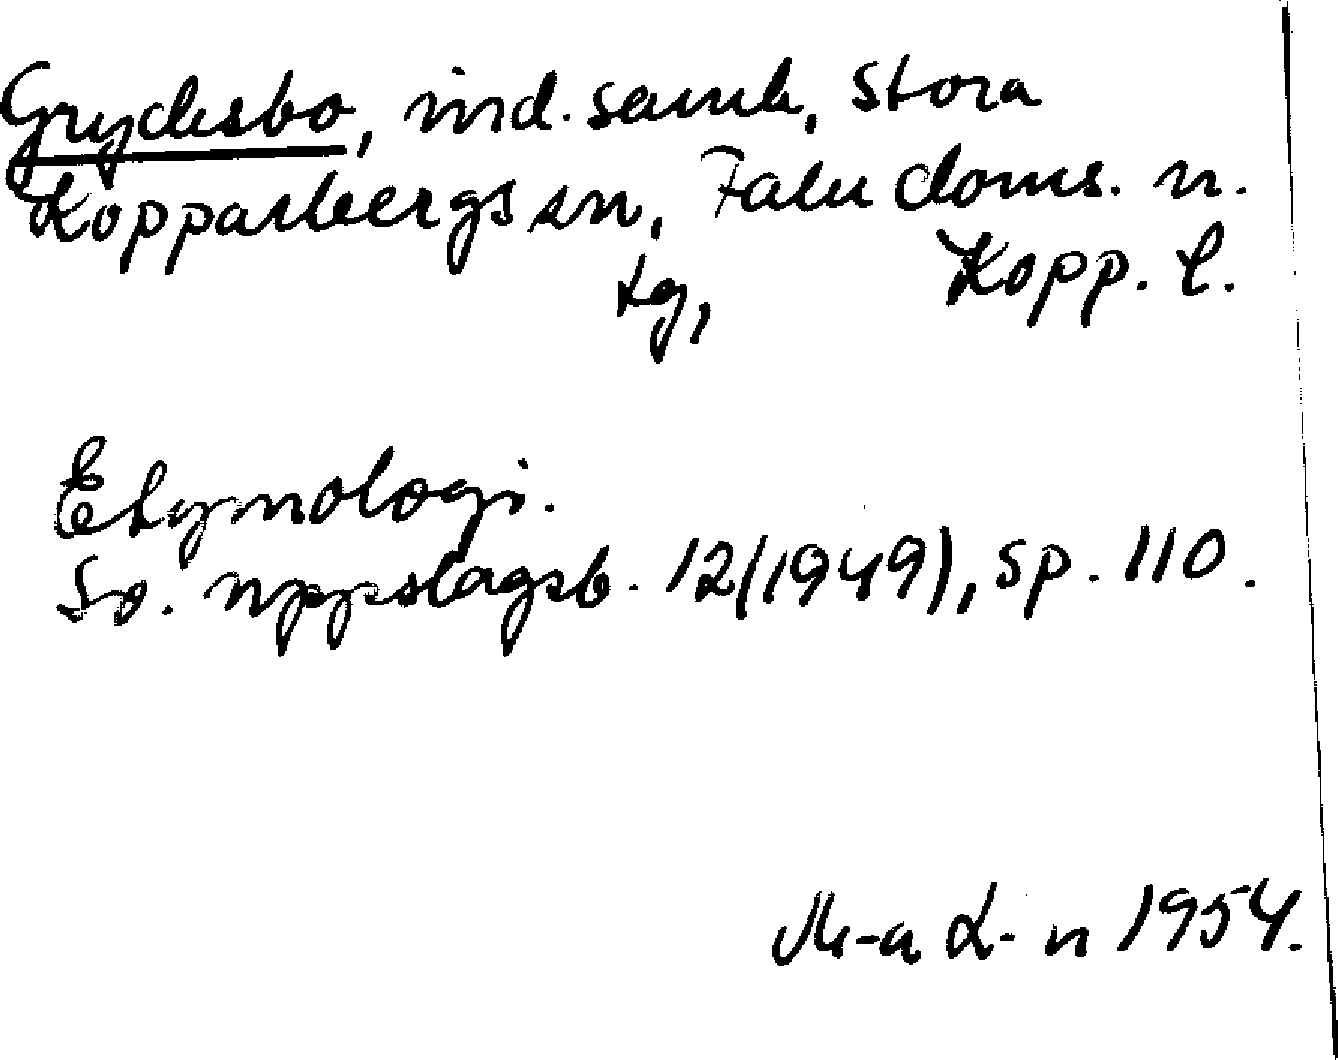 Grycksbo, ind. samh, Stora
Kopparbergs sn, Falu doms. n.
tg, Kopp. l.
Etymologi.
Sv. uppslagsb. 12(1949), sp. 110.
M-a L-n 1954.